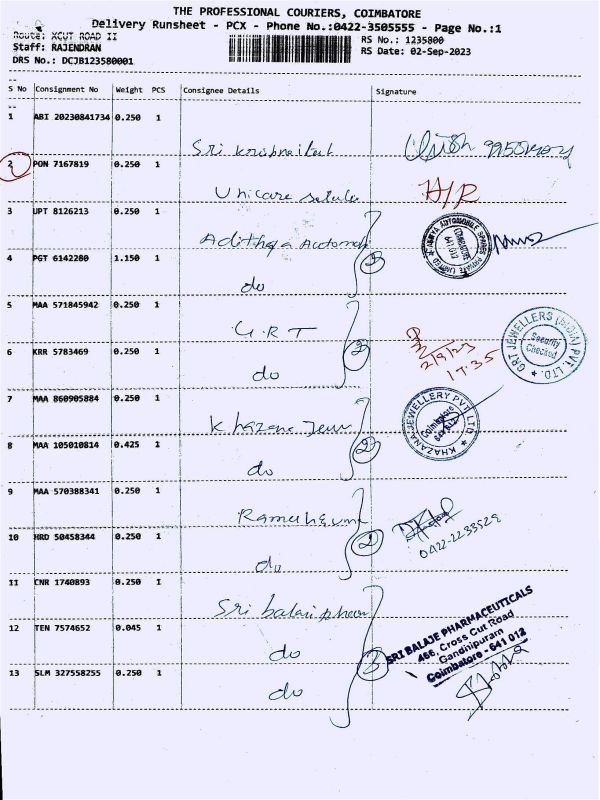 THE PROFESSIONAL COURIERS, COIMBATORE
Delivery Runsheet - PCX - Phone No.:0422-3505555 - Page No.:1
Route: XCUT ROAD II
RS No.: 1235800
Staff: RAJENDRAN
RS Date: 02-Sep-2023
DRS No.: DCJB123580001
S No Consignment No Weight PCS Consignee Details Signature
1 ABI 20230841734 0.250 1
Sri
2 PON 7167819 0.250 1
Unicare
H/R
3 UPT 8126213 0.250 1
Adithya
4 PGT 6142280 1.150 1
do 2
5 MAA 571845942 0.250 1
G.R.T
GRT JEWELLERS (INDIA) PVT. LTD.
Security
Checked
6 KRR 5783469 0.250 1
do 2
2/9/23
17.35
7 MAA 860905884 0.250 1
Khazana Jew
KHAZANA JEWELLERY PVT LTD
Coimbatore
8 MAA 105010814 0.425 1
do 2
9 MAA 570388341 0.250 1
10 HRD 50458344 0.250 1
do 2
0422-2233529
11 CNR 1740893 0.250 1
Sri balaji
12 TEN 7574652 0.045 1
do 3
SRI BALAJE PHARMACEUTICALS
466, Cross Cut Road
Gandhipuram
Coimbatore - 641 012
13 SLM 327558255 0.250 1
do